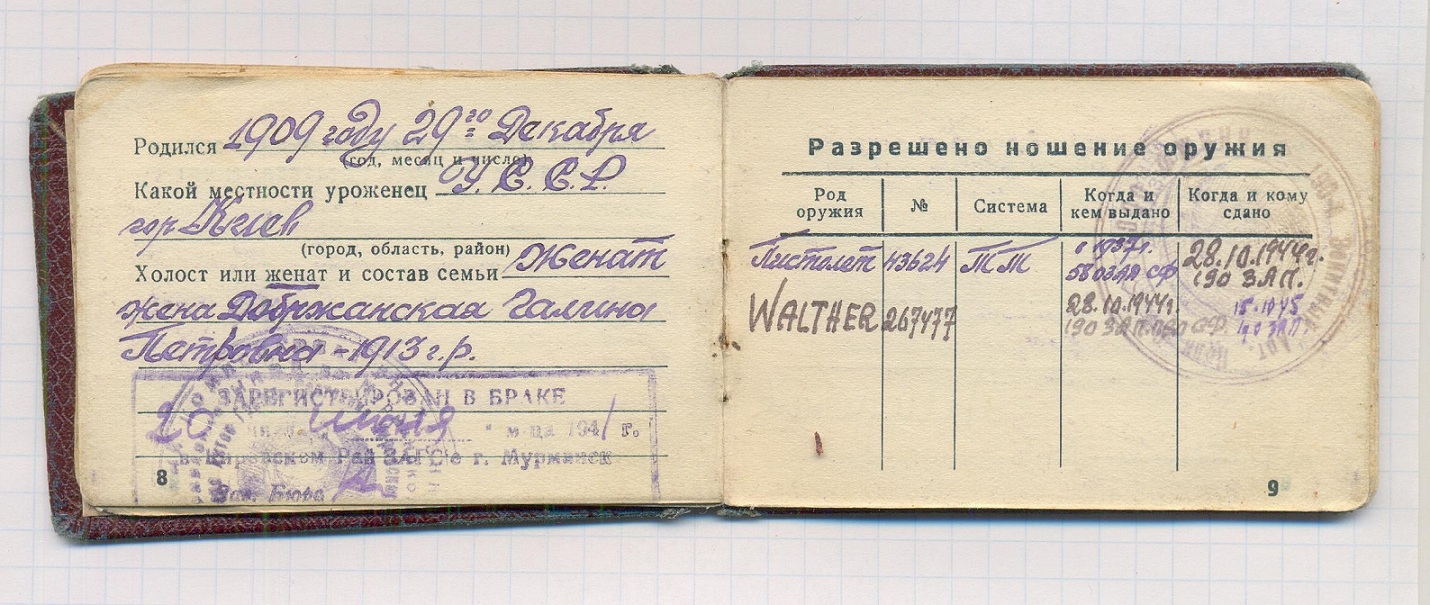 Родился 1909 году 29го Декабря
(год, месяц и число)
Какой местности уроженец У.С.С.Р.
гор Киев
(город, область, район)
Холост или женат и состав семьи Женат
жена Добржанская Галина
Петровна - 1913 г.р.
ЗАРЕГИСТРИРОВАН В БРАКЕ
20 июня м-ца 1941 г.
в Кировском Рай ЗАГС'е г. Мурманск
Зав. Бюро
8
Разрешено ношение оружия
Род оружия № Система Когда и кем выдано Когда и кому сдано
Пистолет 43624 28.10.1944г.
190 ЗАП.
WALTHER 267477 28.10.1944г. 15.10.45
190 ЗАП
9